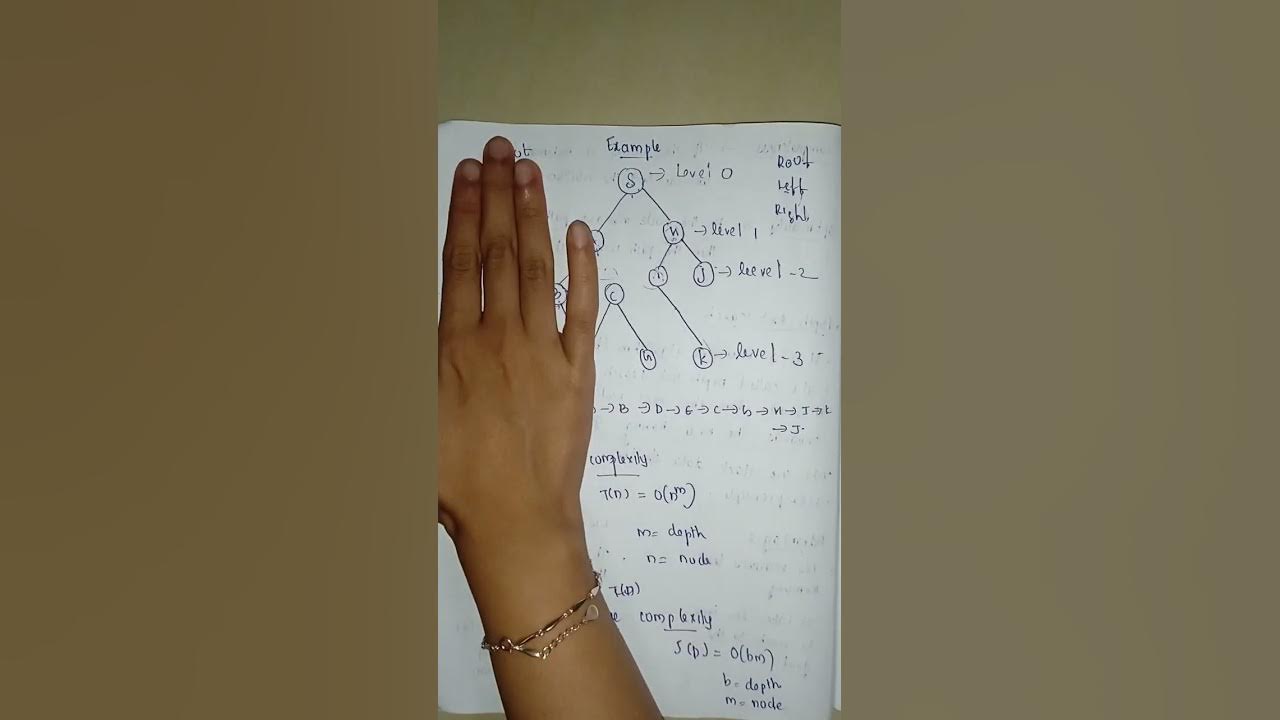 Example
Root
Left
Right
S → Level 0
H → level 1
J → level - 2
C
G
K → level - 3
→ B → D → E → C → G → H → I → K
→ J.
complexity
T(n) = O(n^m)
m = depth
n = node
complexity
S(p) = O(bm)
b = depth
m = node